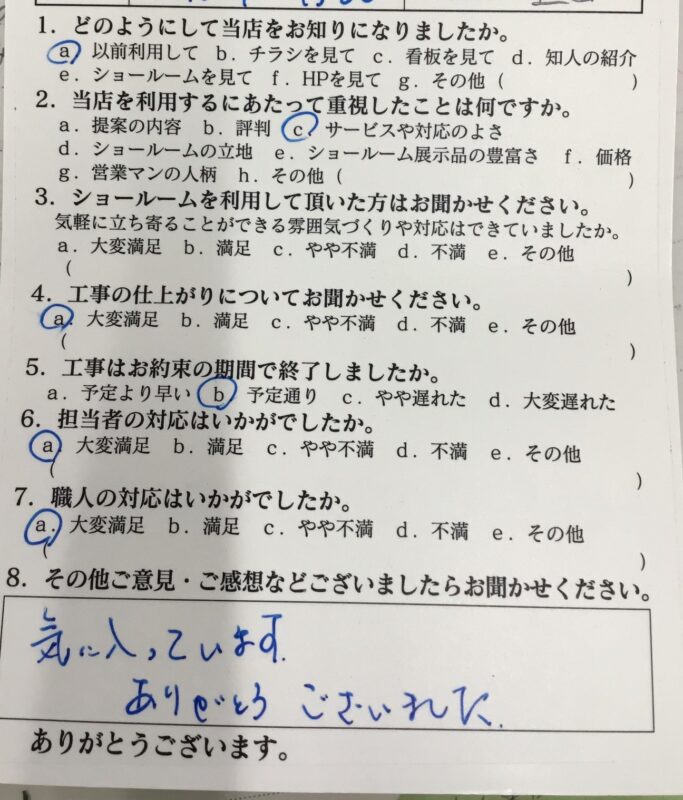 1．どのようにして当店をお知りになりましたか。
a．以前利用して b．チラシを見て c．看板を見て d．知人の紹介
e．ショールームを見て f．HPを見て g．その他（　　　　　　　）
2．当店を利用するにあたって重視したことは何ですか。
a．提案の内容 b．評判 c．サービスや対応のよさ
d．ショールームの立地 e．ショールーム展示品の豊富さ f．価格
g．営業マンの人柄 h．その他（　　　　　　　　　　　　　　）
3．ショールームを利用して頂いた方はお聞かせください。
気軽に立ち寄ることができる雰囲気づくりや対応はできていましたか。
a．大変満足 b．満足 c．やや不満 d．不満 e．その他
（　　　　　　　　　　　　　　　　　　　　　　　　　　　）
4．工事の仕上がりについてお聞かせください。
a．大変満足 b．満足 c．やや不満 d．不満 e．その他
（　　　　　　　　　　　　　　　　　　　　　　　　　　　）
5．工事はお約束の期間で終了しましたか。
a．予定より早い b．予定通り c．やや遅れた d．大変遅れた
6．担当者の対応はいかがでしたか。
a．大変満足 b．満足 c．やや不満 d．不満 e．その他
（　　　　　　　　　　　　　　　　　　　　　　　　　　　）
7．職人の対応はいかがでしたか。
a．大変満足 b．満足 c．やや不満 d．不満 e．その他
（　　　　　　　　　　　　　　　　　　　　　　　　　　　）
8．その他ご意見・ご感想などございましたらお聞かせください。
気に入っています.
ありがとうございました.
ありがとうございます。